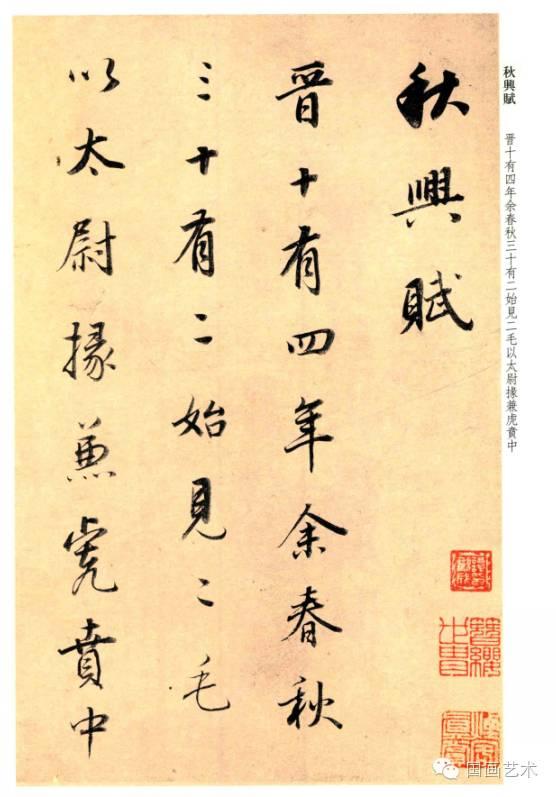 秋興賦
晉十有四年余春秋
三十有二始見二毛
以太尉掾兼虎賁中
秋興賦 晋十有四年余春秋三十有二始見二毛以太尉掾兼虎賁中
国画艺术